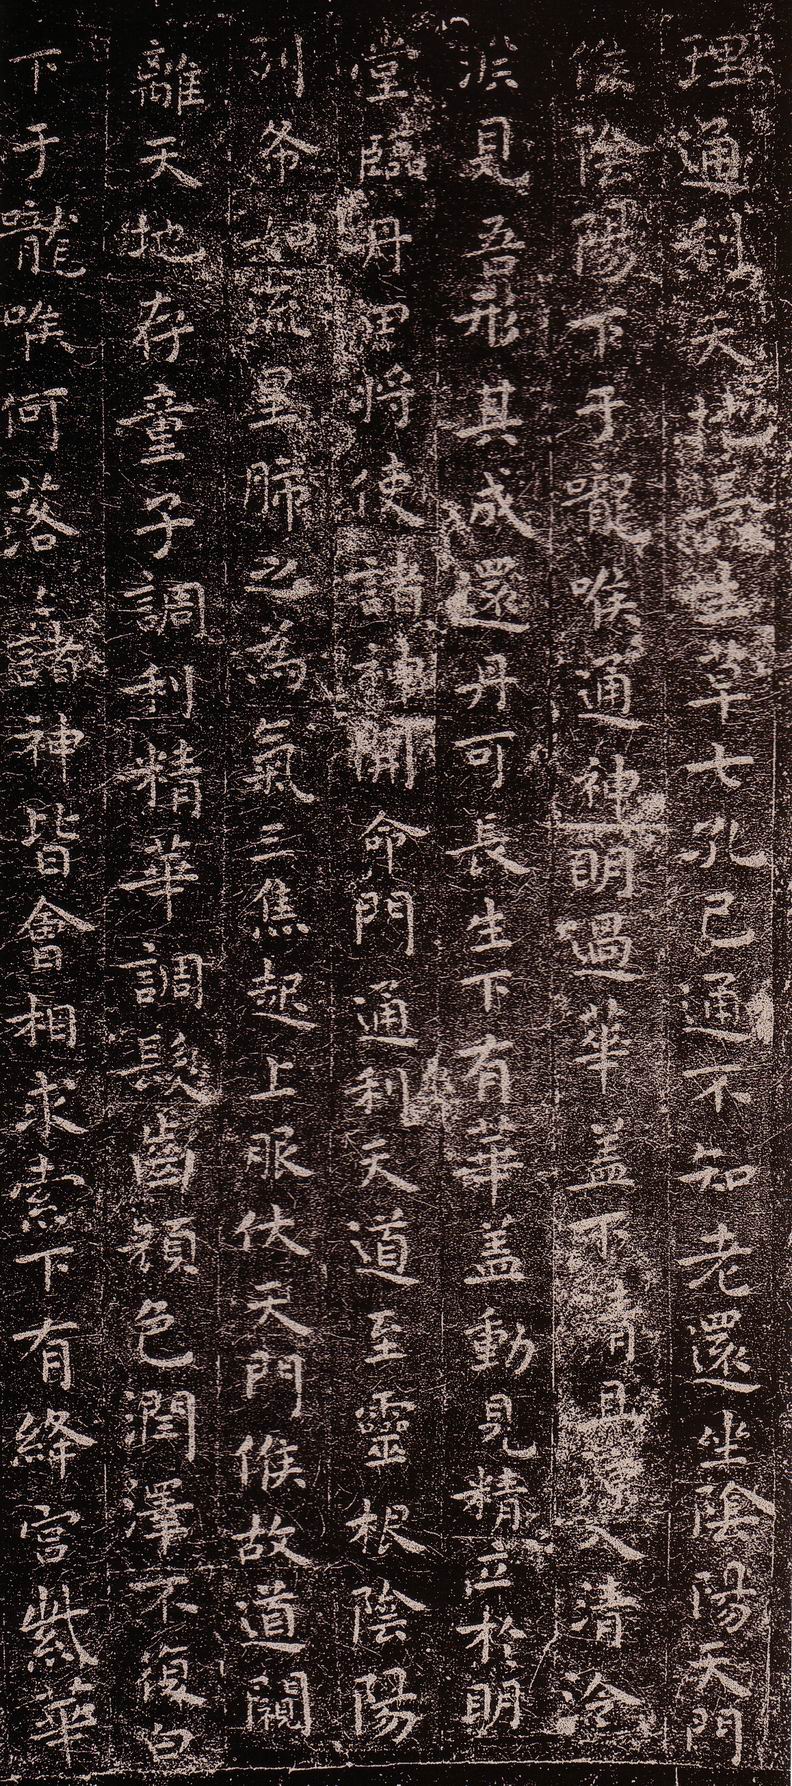 理通利天地長生草七孔已通不知老還坐陰陽天門
候陰陽下于嚨喉通神明過華蓋下清且涼入清泠
淵見吾形其成還丹可長生下有華蓋動見精立於明
堂臨丹田將使諸神開命門通利天道至靈根陰陽
列布如流星肺之為氣三焦起上服伏天門候故道闚
離天地存童子調利精華調髮齒顏色潤澤不復白
下于嚨喉何落〻諸神皆會相求索下有絳宮紫華